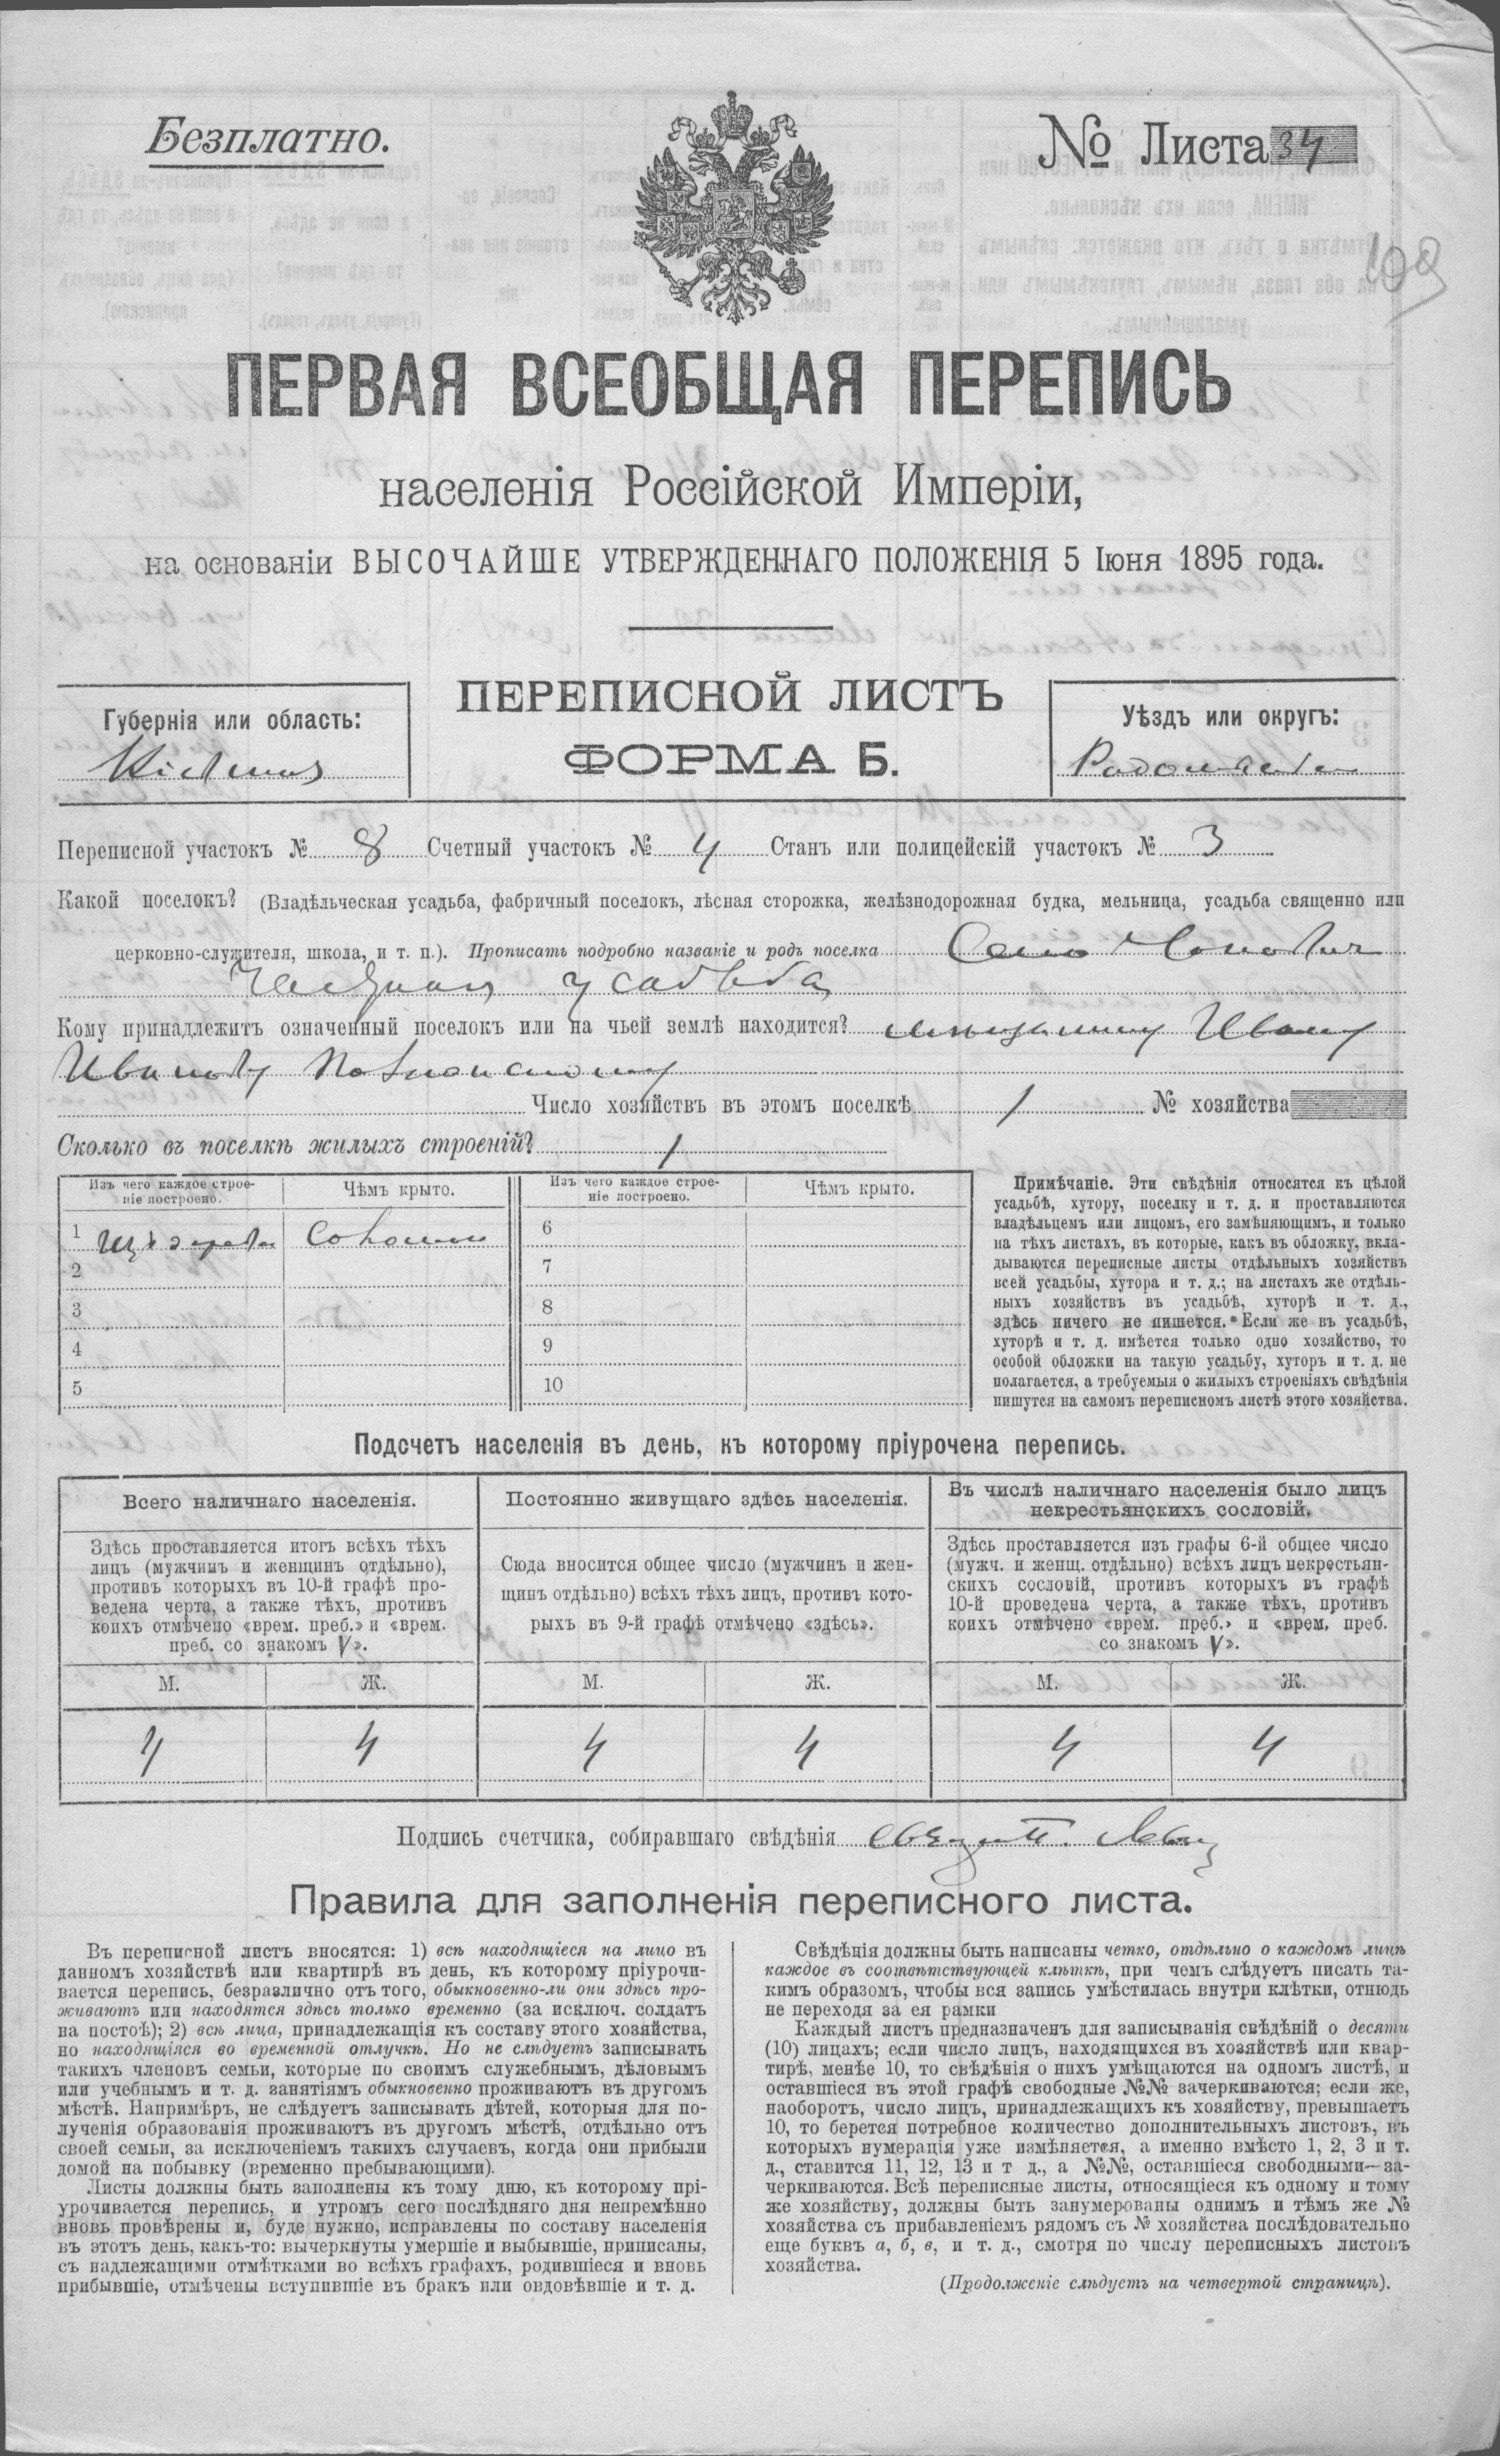 Безплатно.
№ Листа 34
109
ПЕРВАЯ ВСЕОБЩАЯ ПЕРЕПИСЬ
населенія Россійской Имперіи,
на основаніи ВЫСОЧАЙШЕ УТВЕРЖДЕННАГО ПОЛОЖЕНІЯ 5 Іюня 1895 года.
ПЕРЕПИСНОЙ ЛИСТЪ
ФОРМА Б.
Губернія или область:
Кіевская
Уѣздъ или округъ:
Переписной участокъ № 8 Счетный участокъ № 4 Станъ или полицейскій участокъ № 3
Какой поселокъ? (Владѣльческая усадьба, фабричный поселокъ, лѣсная сторожка, желѣзнодорожная будка, мельница, усадьба священно или
церковно-служителя, школа, и т. п.). Прописать подробно названіе и родъ поселка Село
усадьба
Кому принадлежитъ означенный поселокъ или на чьей землѣ находится? мѣщанину Ивану
Иванову
Число хозяйствъ въ этомъ поселкѣ 1 № хозяйства
Сколько въ поселкѣ жилыхъ строеній? 1
Изъ чего каждое строе-
ніе построено.
Чѣмъ крыто.
Изъ чего каждое строе-
ніе построено.
Чѣмъ крыто.
1 Изъ дерева соломой 6
2 7
3 8
4 9
5 10
Примѣчаніе. Эти свѣдѣнія относятся къ цѣлой
усадьбѣ, хутору, поселку и т. д. и проставляются
владѣльцемъ или лицомъ, его замѣняющимъ, и только
на тѣхъ листахъ, въ которые, какъ въ обложку, вкла-
дываются переписные листы отдѣльныхъ хозяйствъ
всей усадьбы, хутора и т. д.; на листахъ же отдѣль-
ныхъ хозяйствъ въ усадьбѣ, хуторѣ и т. д.,
здѣсь ничего не пишется. Если же въ усадьбѣ,
хуторѣ и т. д. имѣется только одно хозяйство, то
особой обложки на такую усадьбу, хуторъ и т. д. не
полагается, а требуемыя о жилыхъ строеніяхъ свѣдѣнія
пишутся на самомъ переписномъ листѣ этого хозяйства.
Подсчетъ населенія въ день, къ которому пріурочена перепись.
Всего наличнаго населенія.
Здѣсь проставляется итогъ всѣхъ тѣхъ
лицъ (мужчинъ и женщинъ отдѣльно),
противъ которыхъ въ 10-й графѣ про-
ведена черта, а также тѣхъ, противъ
коихъ отмѣчено «врем. преб.» и «врем.
преб. со знакомъ V».
Постоянно живущаго здѣсь населенія.
Сюда вносится общее число (мужчинъ и жен-
щинъ отдѣльно) всѣхъ тѣхъ лицъ, противъ кото-
рыхъ въ 9-й графѣ отмѣчено «здѣсь».
Въ числѣ наличнаго населенія было лицъ
некрестьянскихъ сословій.
Здѣсь проставляется изъ графы 6-й общее число
(мужч. и женщ. отдѣльно) всѣхъ лицъ некрестьян-
скихъ сословій, противъ которыхъ въ графѣ
10-й проведена черта, а также тѣхъ, противъ
коихъ отмѣчено «врем. преб.» и «врем. преб.
со знакомъ V».
М. Ж. М. Ж. М. Ж.
4 4 4 4 4 4
Подпись счетчика, собиравшаго свѣдѣнія
Правила для заполненія переписного листа.
Въ переписной листъ вносятся: 1) всѣ находящіеся на лицо въ
данномъ хозяйствѣ или квартирѣ въ день, къ которому пріурочи-
вается перепись, безразлично отъ того, обыкновенно-ли они здѣсь про-
живаютъ или находятся здѣсь только временно (за исключ. солдатъ
на постоѣ); 2) всѣ лица, принадлежащія къ составу этого хозяйства,
но находящіяся во временной отлучкѣ. Но не слѣдуетъ записывать
такихъ членовъ семьи, которые по своимъ служебнымъ, дѣловымъ
или учебнымъ и т. д. занятіямъ обыкновенно проживаютъ въ другомъ
мѣстѣ. Напримѣръ, не слѣдуетъ записывать дѣтей, которыя для по-
лученія образованія проживаютъ въ другомъ мѣстѣ, отдѣльно отъ
своей семьи, за исключеніемъ такихъ случаевъ, когда они прибыли
домой на побывку (временно пребывающими).
Листы должны быть заполнены къ тому дню, къ которому прі-
урочивается перепись, и утромъ сего послѣдняго дня непремѣнно
вновь провѣрены и, буде нужно, исправлены по составу населенія
въ этотъ день, какъ-то: вычеркнуты умершіе и выбывшіе, приписаны,
съ надлежащими отмѣтками во всѣхъ графахъ, родившіеся и вновь
прибывшіе, отмѣчены вступившіе въ бракъ или овдовѣвшіе и т. д.
Свѣдѣнія должны быть написаны четко, отдѣльно о каждомъ лицѣ
каждое въ соотвѣтствующей клѣткѣ, при чемъ слѣдуетъ писать та-
кимъ образомъ, чтобы вся запись умѣстилась внутри клѣтки, отнюдь
не переходя за ея рамки
Каждый листъ предназначенъ для записыванія свѣдѣній о десяти
(10) лицахъ; если число лицъ, находящихся въ хозяйствѣ или квар-
тирѣ, менѣе 10, то свѣдѣнія о нихъ умѣщаются на одномъ листѣ, и
оставшіеся въ этой графѣ свободные №№ зачеркиваются; если же,
наоборотъ, число лицъ, принадлежащихъ къ хозяйству, превышаетъ
10, то берется потребное количество дополнительныхъ листовъ, въ
которыхъ нумерація уже измѣняется, а именно вмѣсто 1, 2, 3 и т.
д., ставится 11, 12, 13 и т д., а №№, оставшіеся свободными—за-
черкиваются. Всѣ переписные листы, относящіеся къ одному и тому
же хозяйству, должны быть занумерованы однимъ и тѣмъ же №
хозяйства съ прибавленіемъ рядомъ съ № хозяйства послѣдовательно
еще буквъ а, б, в, и т. д., смотря по числу переписныхъ листовъ
хозяйства.
(Продолженіе слѣдуетъ на четвертой страницѣ).